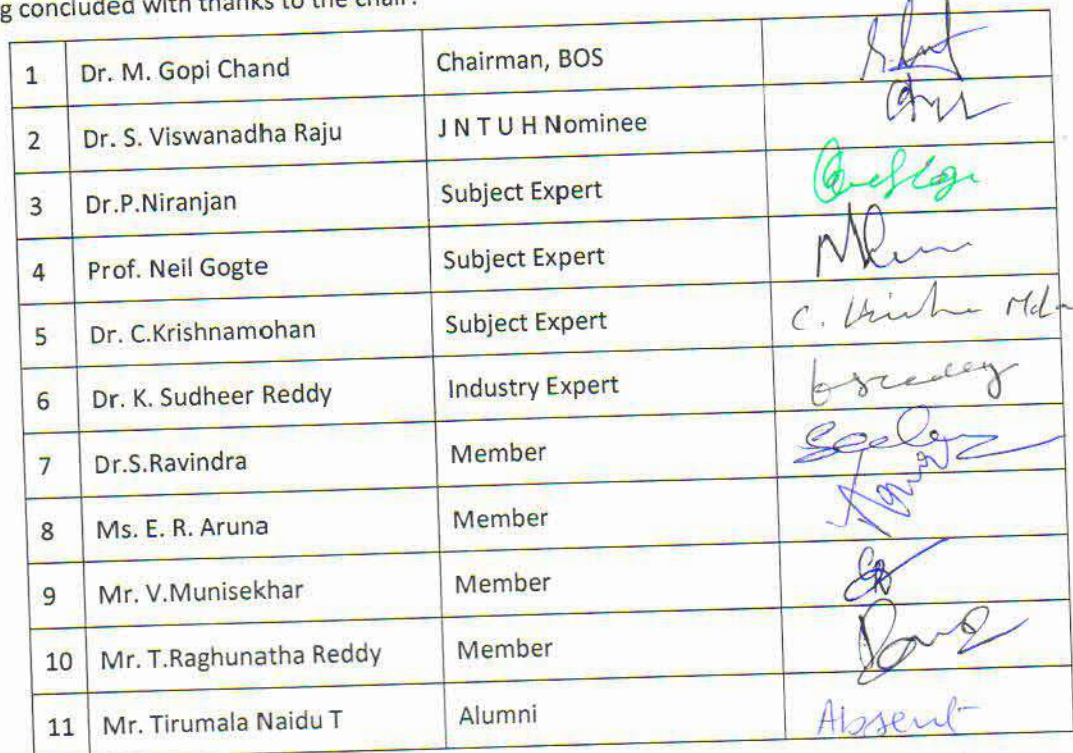 g concluded with thanks to the chair.
1 Dr. M. Gopi Chand Chairman, BOS
2 Dr. S. Viswanadha Raju J N T U H Nominee
3 Dr.P.Niranjan Subject Expert
4 Prof. Neil Gogte Subject Expert
5 Dr. C.Krishnamohan Subject Expert
6 Dr. K. Sudheer Reddy Industry Expert
7 Dr.S.Ravindra Member
8 Ms. E. R. Aruna Member
9 Mr. V.Munisekhar Member
10 Mr. T.Raghunatha Reddy Member
11 Mr. Tirumala Naidu T Alumni Absent